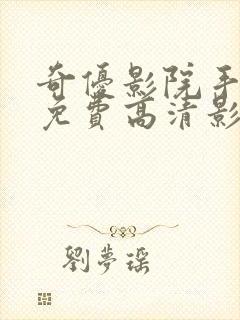 奇優影院手
免費高清影
劉夢瑶